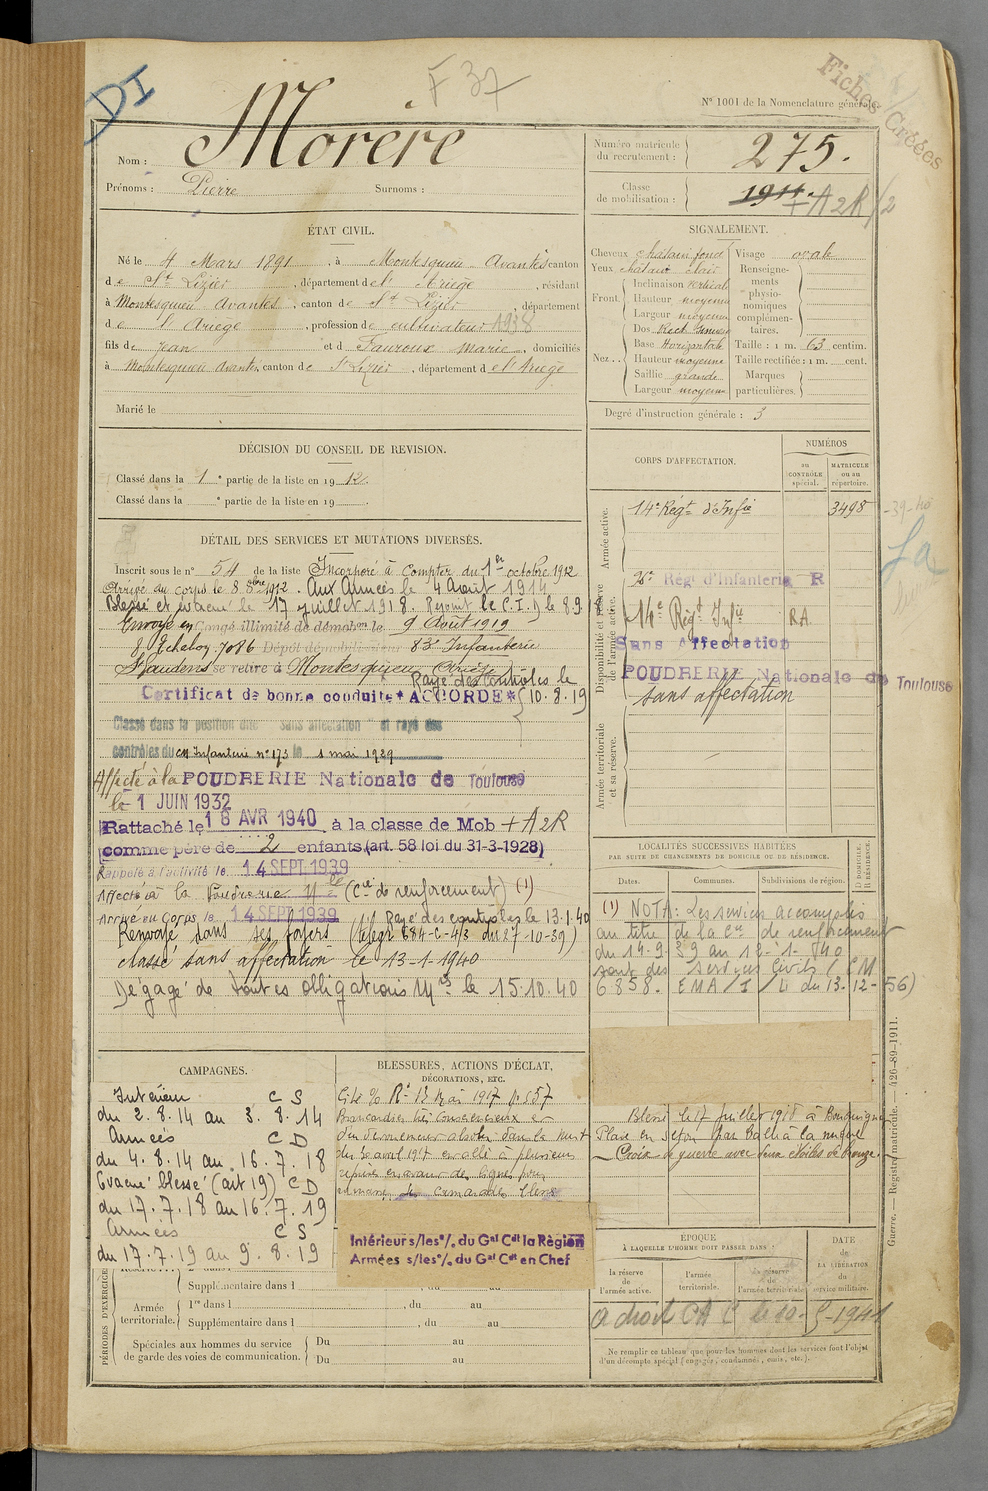 DI
F 37
Fiches Créées
N° 1001 de la Nomenclature générale.
Nom : Morère
Prénoms : Pierre Surnoms :
Numéro matricule du recrutement : 275.
Classe de mobilisation : 1911 + A2R/2
ÉTAT CIVIL.
Né le 4 Mars 1891, à Montesquieu Avantès canton
de St Lizier, département de l'Ariège, résidant
à Montesquieu Avantès, canton de St Lizier, département
de l'Ariège, profession de cultivateur 1938
fils de Jean et d Fauroux Marie, domiciliés
à Montesquieu Avantès, canton de St Lizier, département de l'Ariège
Marié le
SIGNALEMENT.
Cheveux châtain foncé
Yeux châtain clair
Front Inclinaison vertical
Hauteur moyenne
Largeur moyenne
Nez Dos Rect. Sinueux
Base Horizontale
Hauteur moyenne
Saillie grande
Largeur moyenne
Visage ovale
Renseignements physionomiques complémentaires.
Taille : 1 m. 63 centim.
Taille rectifiée : 1 m. cent.
Marques particulières.
Degré d'instruction générale : 3
DÉCISION DU CONSEIL DE REVISION.
Classé dans la 1e partie de la liste en 1912.
Classé dans la e partie de la liste en 19
CORPS D'AFFECTATION.
NUMÉROS
au CONTRÔLE spécial.
MATRICULE ou au répertoire.
Armée active.
14e Régt d'Infie 3498
-39-40
Disponibilité et réserve de l'armée active.
Régt d'Infanterie R
14e Régt Infie RA
Sans Affectation
POUDRERIE Nationale de Toulouse
sans affectation
Armée territoriale et sa réserve.
DÉTAIL DES SERVICES ET MUTATIONS DIVERSES.
Inscrit sous le n° 54 de la liste Incorporé à compter du 1er octobre 1912
Arrivé au corps le 8 8bre 1912. Aux Armées le 4 Août 1914
Blessé et évacué le 17 juillet 1918. Rejoint le C.I.D le 8.9.18
Envoyé en Congé illimité de démobon le 9 Août 1919
8e Echelon 7086 Dépôt démobilisateur 83e Infanterie
St Gaudens se retire à Montesquieu Ariège
Rayé des contrôles le 10.8.19
Certificat de bonne conduite * ACCORDÉ *
Classé dans la position dite "sans affectation" et rayé des
contrôles du CM Infanterie n° 173 le 1 mai 1939
Affecté à la POUDRERIE Nationale de Toulouse
le 1 JUIN 1932
Rattaché le 18 AVR 1940 à la classe de Mob + A2R
comme père de 2 enfants (art. 58 loi du 31-3-1928)
Rappelé à l'activité le 14 SEPT 1939
Affecté à la Poudrerie Nle (Cie de renforcement) (1)
Arrivé au Corps le 14 SEPT 1939 Rayé des contrôles le 13.1.40
Renvoyé dans ses foyers (télégr 684-C-4/3 du 27-10-39)
classé sans affectation le 13-1-1940
Dégagé de toutes obligations Mres le 15.10.40
LOCALITÉS SUCCESSIVES HABITÉES
PAR SUITE DE CHANGEMENTS DE DOMICILE OU DE RÉSIDENCE.
Dates. Communes. Subdivisions de région. D. DOMICILE. R. RÉSIDENCE.
(1) NOTA : Les services accomplis
au titre de la Cie de renforcement
du 14.9.39 au 12-1-40
sont des services Civils (CM
6858. EMA/1/L du 13-12-56)
CAMPAGNES.
Intérieur C S
du 2.8.14 au 3.8.14
Armées C D
du 4.8.14 au 16.7.18
Evacué blessé (art 19) C D
du 17.7.18 au 16.7.19
Armées C S
du 17.7.19 au 9.8.19
BLESSURES, ACTIONS D'ÉCLAT,
DÉCORATIONS, ETC.
Cité % Rt 13 Mai 1917 n° 557
Brancardier très consciencieux et
d'un dévouement absolu dans la nuit
du 30 avril 1917 est allé à plusieurs
reprises en avant des lignes pour
ramener des camarades blessés
Blessé le 17 Juillet 1918 à Bouquigny
Plaie en séton par balle à la nuque
Croix de guerre avec deux étoiles de bronze.
Intérieur s/les % du Gal Cdt la Région
Armées s/les % du Gal Cdt en Chef
PÉRIODES D'EXERCICES
Supplémentaire dans l , du au
Armée territoriale. 1re dans l , du au
Supplémentaire dans l , du au
Spéciales aux hommes du service de garde des voies de communication. Du au
Du au
ÉPOQUE
À LAQUELLE L'HOMME DOIT PASSER DANS :
la réserve de l'armée active. l'armée territoriale. la réserve de l'armée territoriale.
DATE de LA LIBÉRATION du service militaire.
a droit CA C le 10-5-1941
Ne remplir ce tableau que pour les hommes dont les services font l'objet d'un décompte spécial (engagés, condamnés, omis, etc.).
Guerre. — Registre matricule. — 426-89-1911.